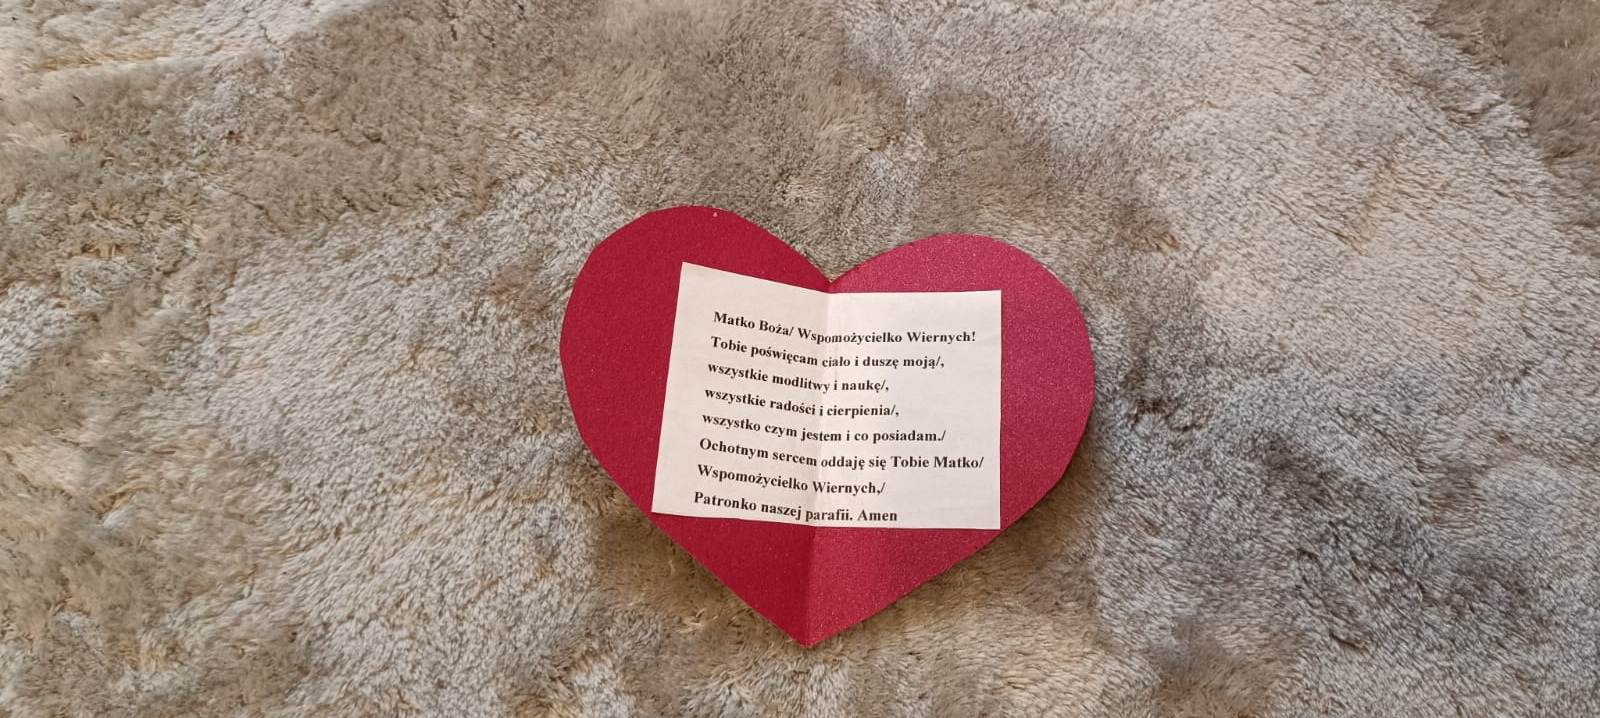 Matko Boża/ Wspomożycielko Wiernych!
Tobie poświęcam ciało i duszę moją/,
wszystkie modlitwy i naukę/,
wszystkie radości i cierpienia/,
wszystko czym jestem i co posiadam./
Ochotnym sercem oddaję się Tobie Matko/
Wspomożycielko Wiernych,/
Patronko naszej parafii. Amen